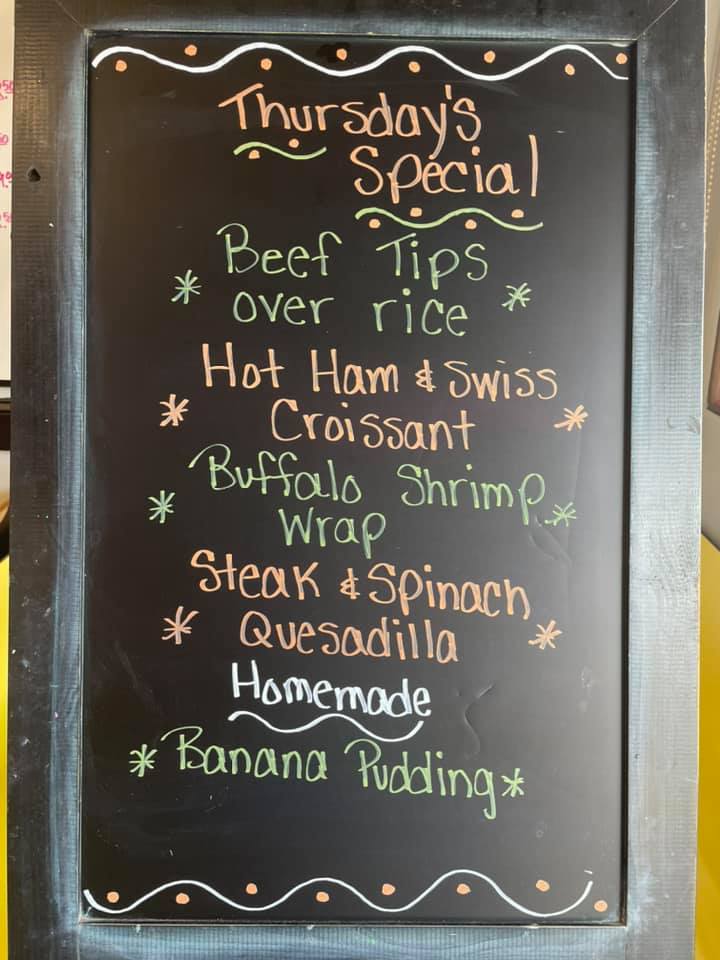 Thursday's
Special
Beef Tips
* over rice *
Hot Ham & Swiss
* Croissant *
Buffalo Shrimp
* Wrap *
Steak & Spinach
* Quesadilla *
Homemade
* Banana Pudding *